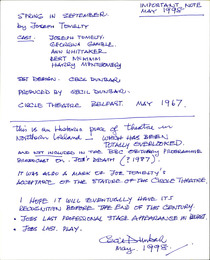 IMPORTANT NOTE
MAY 1998
SPRING IN SEPTEMBER
by JOSEPH TOMELTY
CAST: JOSEPH TOMELTY.
GEORGINA GAMBLE.
ANN WHITTAKER
BERT McKIMM
HARRY MONTGOMERY
SET DESIGN - CECIL DUNBAR.
PRODUCED BY CECIL DUNBAR.
CIRCLE THEATRE BELFAST. MAY 1967.
This is an historic piece of theatre in
Northern Ireland - WHICH HAS BEEN
TOTALLY OVERLOOKED.
AND NOT INCLUDED IN THE BBC OBITUARY PROGRAMME
BROADCAST ON JOE'S DEATH (? 198?)
IT WAS ALSO A MARK OF JOE TOMELTY'S
ACCEPTANCE OF THE STATURE OF THE CIRCLE THEATRE.
I HOPE IT WILL EVENTUALLY HAVE ITS
RECOGNITION BEFORE THE END OF THE CENTURY.
• JOES LAST PROFESSIONAL STAGE APPEARANCE IN BELFAST.
• JOES LAST PLAY.
Cecil Dunbar
May. 1998.